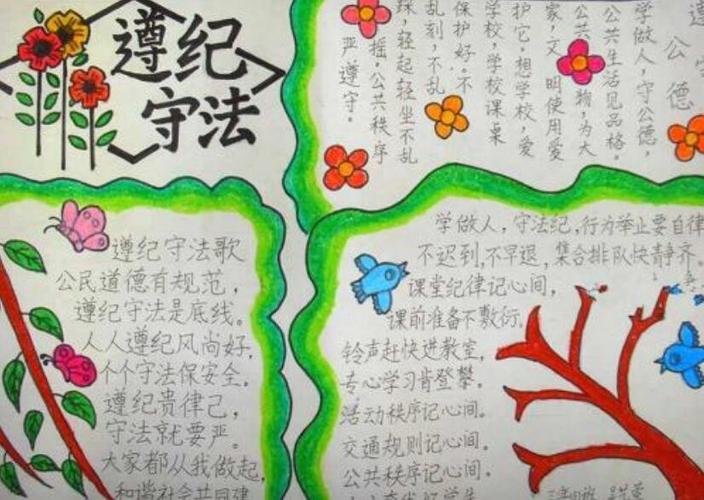 遵纪
守法
遵守
公德
学做人,守公德,
公共生活见品格。
公共物,为大
家,文明使用爱
护它。想学校,爱
学校,学校课桌
保护好。不
乱刻,不乱
踩,轻起轻坐不乱
摇。公共秩序
严遵守。
遵纪守法歌
公民道德有规范,
遵纪守法是底线。
人人遵纪风尚好,
个个守法保安全。
遵纪贵律己,
守法就要严。
大家都从我做起,
和谐社会共同建
学做人,守法纪,行为举止要自律
不迟到,不早退,集合排队快静齐。
课堂纪律记心间,
课前准备不敷衍。
铃声赶快进教室,
专心学习肯登攀。
活动秩序记心间。
交通规则记心间。
公共秩序记心间。